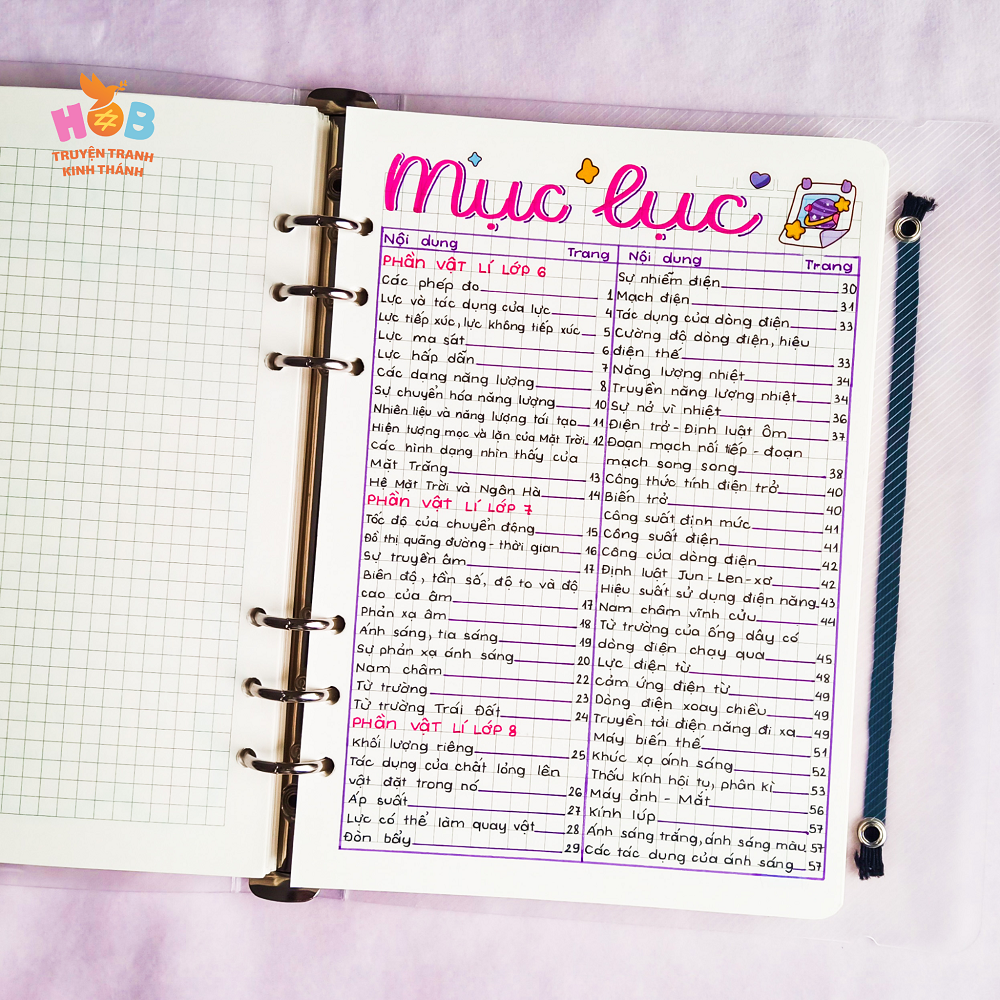 HOB
TRUYỆN TRANH
KINH THÁNH
Mục lục
Nội dung Trang
PHẦN VẬT LÍ LỚP 6
Các phép đo 1
Lực và tác dụng của lực 4
Lực tiếp xúc, lực không tiếp xúc 5
Lực ma sát 6
Lực hấp dẫn 7
Các dạng năng lượng 8
Sự chuyển hóa năng lượng 10
Nhiên liệu và năng lượng tái tạo 11
Hiện tượng mọc và lặn của Mặt Trời 12
Các hình dạng nhìn thấy của
Mặt Trăng 13
Hệ Mặt Trời và Ngân Hà 14
PHẦN VẬT LÍ LỚP 7
Tốc độ của chuyển động 15
Đồ thị quãng đường - thời gian 16
Sự truyền âm 17
Biên độ, tần số, độ to và độ
cao của âm 17
Phản xạ âm 18
Ánh sáng, tia sáng 19
Sự phản xạ ánh sáng 20
Nam châm 22
Từ trường 23
Từ trường Trái Đất 24
PHẦN VẬT LÍ LỚP 8
Khối lượng riêng 25
Tác dụng của chất lỏng lên
vật đặt trong nó 26
Áp suất 27
Lực có thể làm quay vật 28
Đòn bẩy 29
Nội dung Trang
Sự nhiễm điện 30
Mạch điện 31
Tác dụng của dòng điện 33
Cường độ dòng điện, hiệu
điện thế 33
Năng lượng nhiệt 34
Truyền năng lượng nhiệt 34
Sự nở vì nhiệt 36
Điện trở - Định luật Ôm 37
Đoạn mạch nối tiếp - đoạn
mạch song song 38
Công thức tính điện trở 40
Biến trở 40
Công suất định mức 41
Công suất điện 41
Công của dòng điện 42
Định luật Jun - Len - xơ 42
Hiệu suất sử dụng điện năng 43
Nam châm vĩnh cửu 44
Từ trường của ống dây có
dòng điện chạy qua 45
Lực điện từ 48
Cảm ứng điện từ 49
Dòng điện xoay chiều 49
Truyền tải điện năng đi xa 49
Máy biến thế 51
Khúc xạ ánh sáng 52
Thấu kính hội tụ, phân kì 53
Máy ảnh - Mắt 56
Kính lúp 57
Ánh sáng trắng, ánh sáng màu 57
Các tác dụng của ánh sáng 57